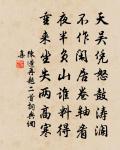 天吴凭怒鼓涛澜
不作闲居卷轴看
夜半负山谁料得
重来坐失两高寒
陈造再题二首词典词
喜